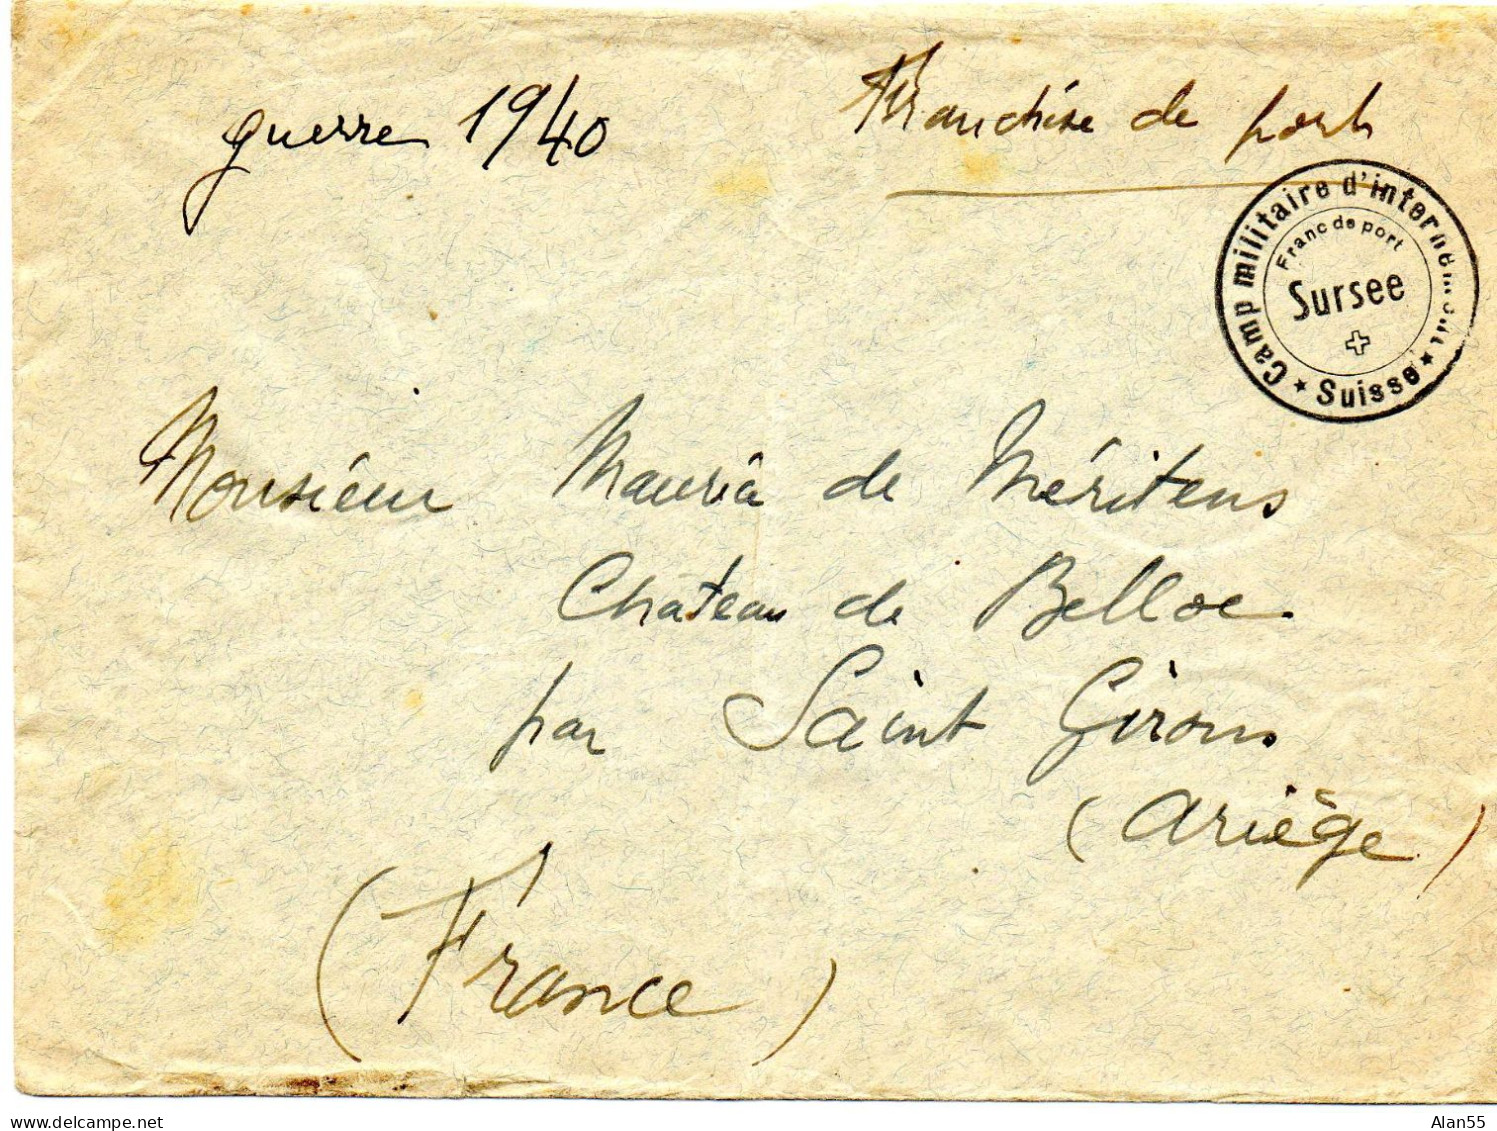 guerre 1940
Franchise de port
Camp militaire d'internement
Franc de port
Sursee
Suisse
Monsieur de Méritens
Château de Belloc
par Saint Girons
(Ariège)
(France)
Alan55